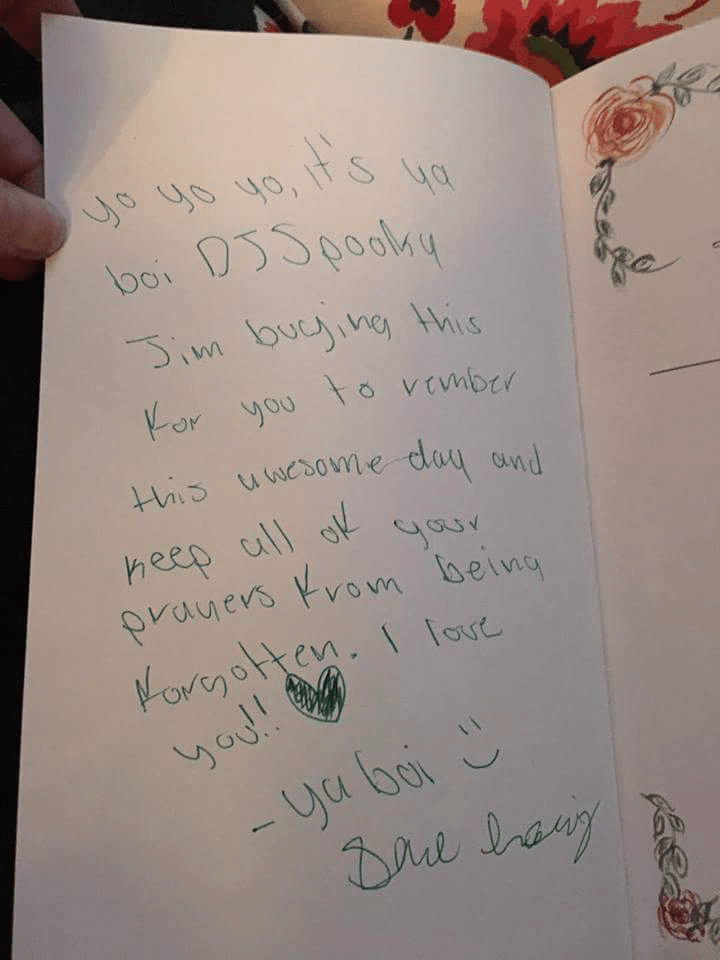 yo yo yo, it's ya
boi DJ Spooky
Jim bucying this
for you to vember
this awesome day and
keep all of your
prayers from being
forgotten. I love
you!!
-ya boi